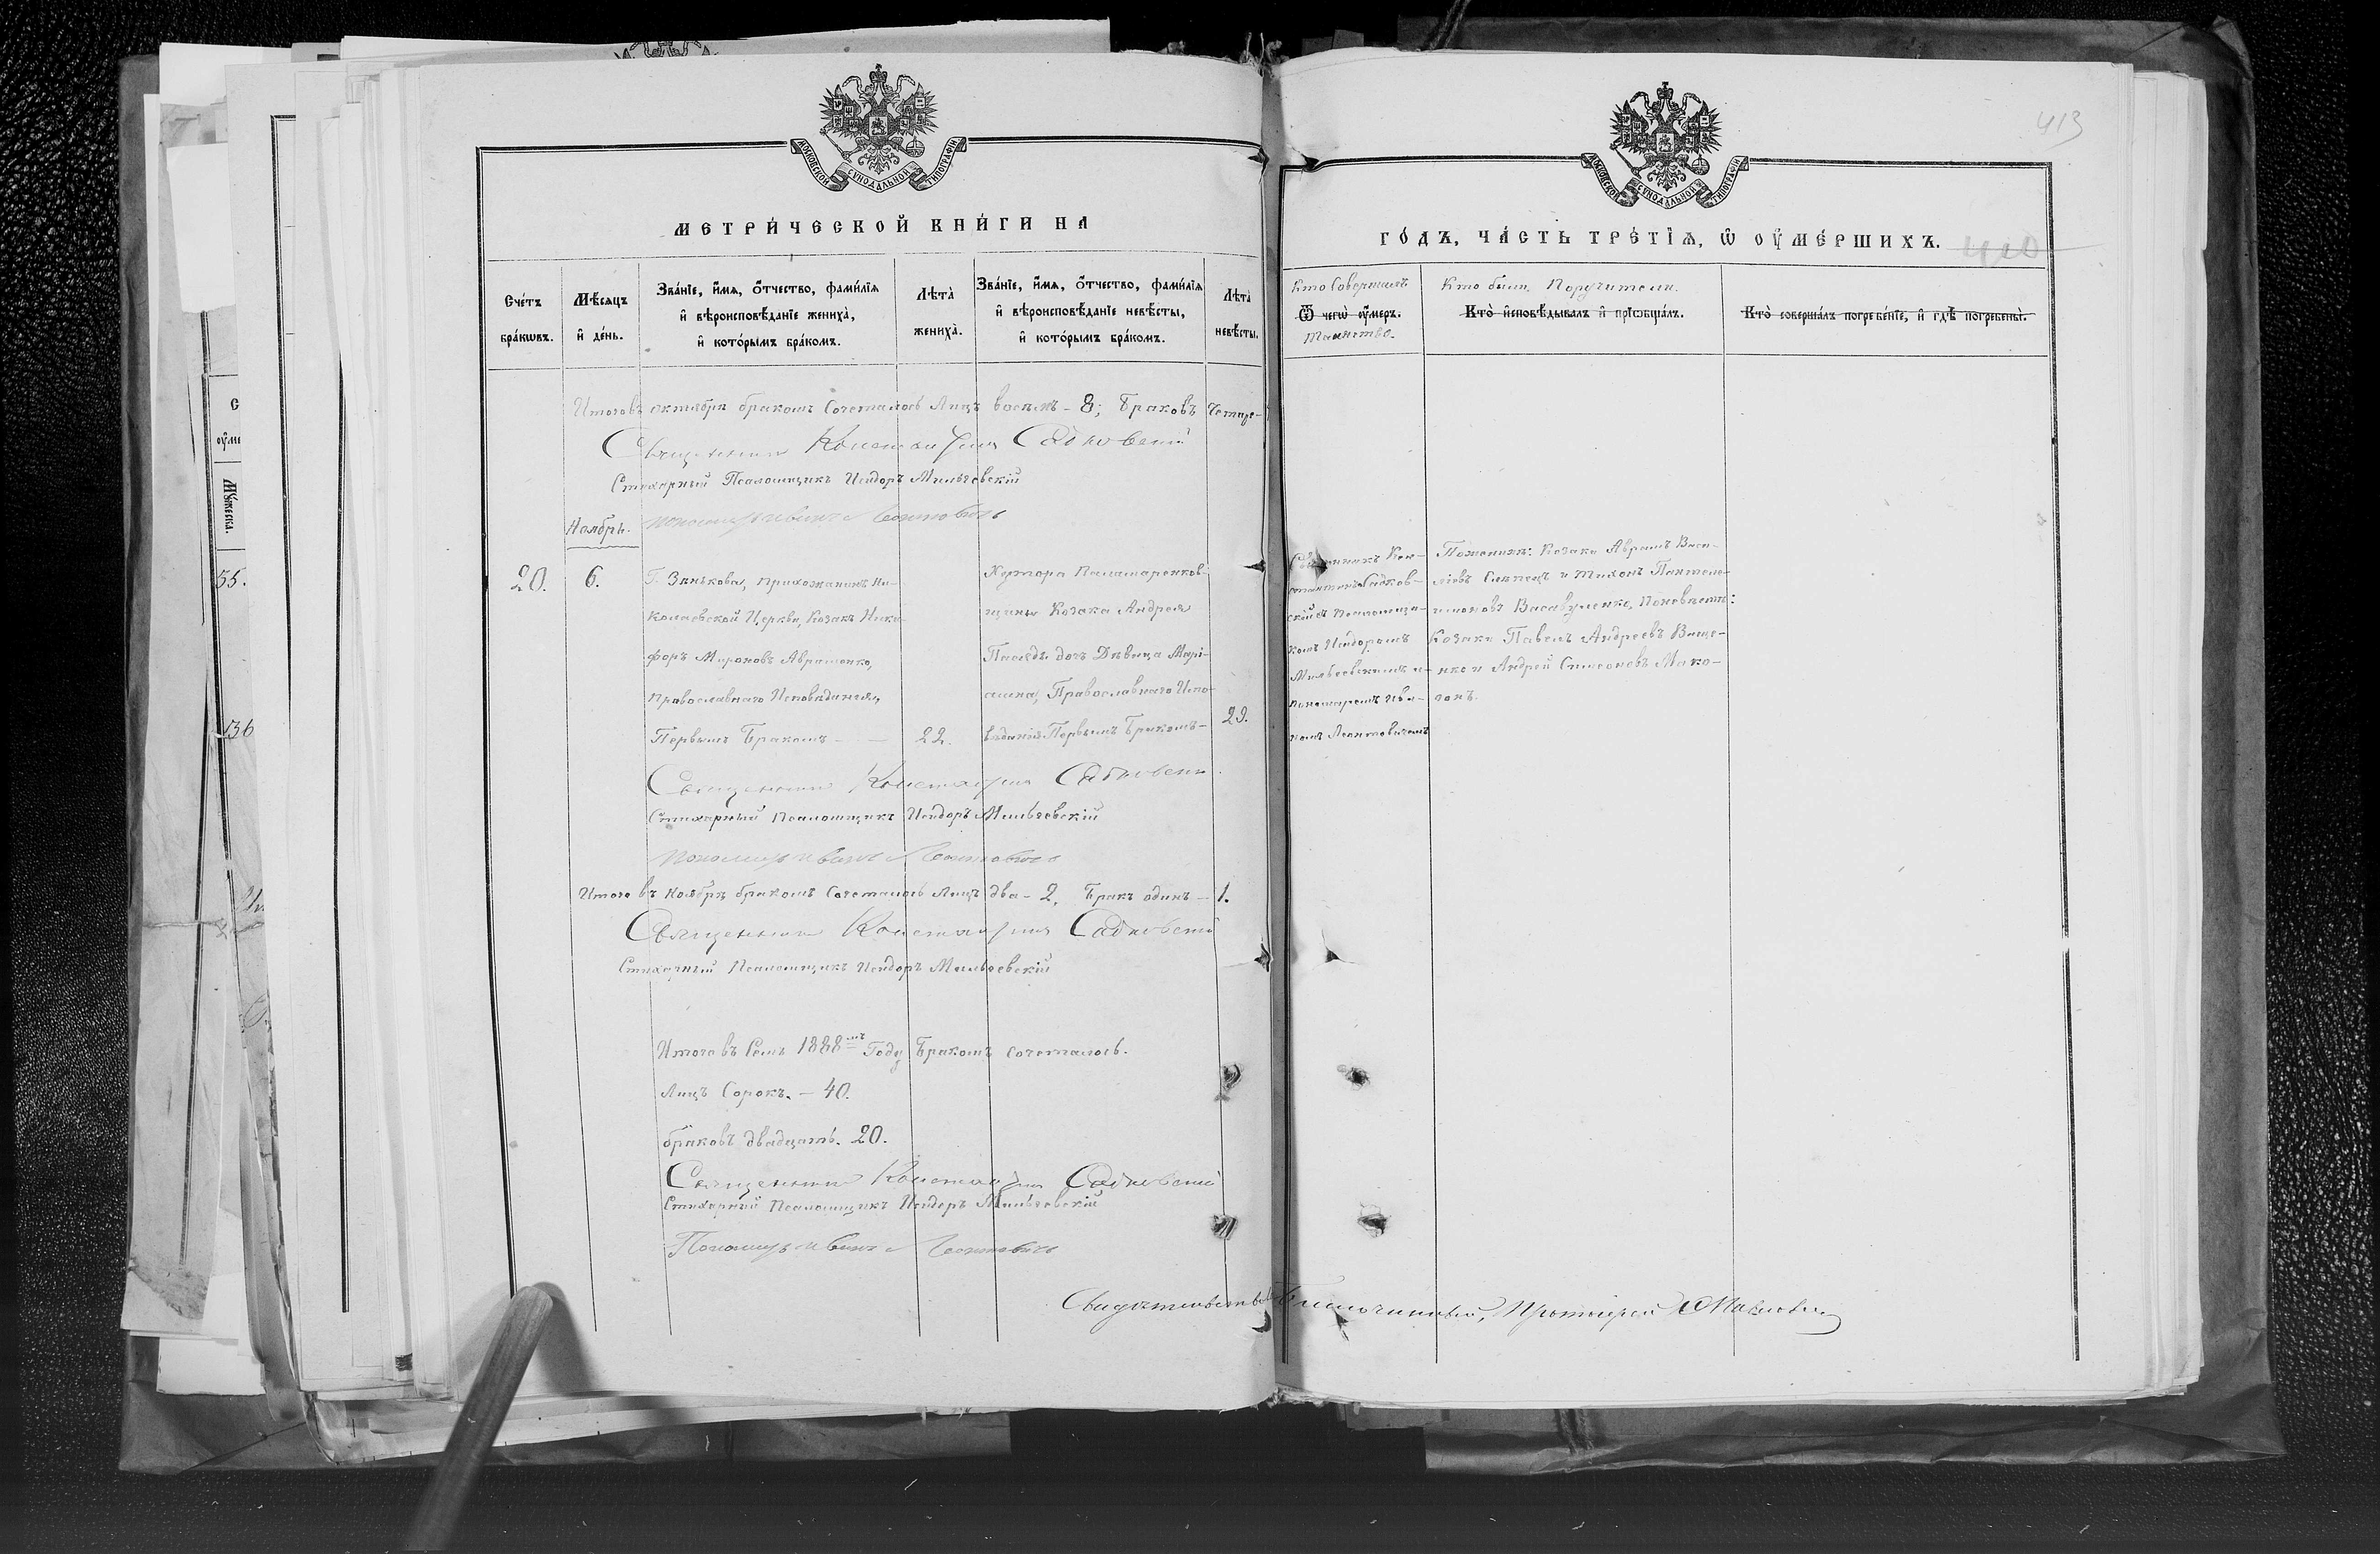 МОСКОВСКОЙ СѴНОДАЛЬНОЙ ТИПОГРАФІИ
МЕТРИ́ЧЕСКОЙ КНИ́ГИ НА
Сче́тъ бра́кωвъ.
Мѣ́сяцъ и҆ де́нь.
Зва́нїе, и҆́мя, ѻ҆́тчество, фами́лїя
и҆ вѣроисповѣ́данїе жениха̀,
и҆ кото́рымъ бра́комъ.
Лѣта̀ жениха̀.
Зва́нїе, и҆́мя, ѻ҆́тчество, фами́лїя
и҆ вѣроисповѣ́данїе невѣ́сты,
и҆ кото́рымъ бра́комъ.
Лѣта̀ невѣ́сты.
Итого въ октябрѣ бракомъ сочеталось лицъ восемь - 8; Браковъ четыре-
Священникъ Константинъ Садковскій
Стихарный Псаломщикъ Исидоръ Мильгевскій
пономарь Иванъ Леонтовичъ
Ноябрь.
20.
6.
Г. Зѣнькова, прихожанинъ Ни-
колаевской Церкви, Козакъ Ники-
форъ Мироновъ Авраменко,
Православнаго Исповѣданія,
Первымъ Бракомъ - -
22.
Хутора Паламаренков-
щины Козака Андрея
дочь Дѣвица Марі-
амна, Православнаго Испо-
вѣданія Первымъ Бракомъ-
29.
Священникъ Константинъ Садковскій
Стихарный Псаломщикъ Исидоръ Мильгевскій
пономарь Иванъ Леонтовичъ
Итого въ Ноябрѣ бракомъ сочеталось лицъ два - 2, Бракъ одинъ - 1.
Священникъ Константинъ Садковскій
Стихарный Псаломщикъ Исидоръ Мильгевскій
Итого въ семъ 1888мъ Году Бракомъ сочеталось.
Лицъ Сорокъ. - 40.
браковъ двадцать. 20.
Священникъ Константинъ Садковскій
Стихарный Псаломщикъ Исидоръ Мильгевскій
Пономарь Иванъ Леонтовичъ
413
МОСКОВСКОЙ СѴНОДАЛЬНОЙ ТИПОГРАФІИ
ГО́ДЪ, ЧА́СТЬ ТРЕ́ТЇѦ, Ѡ҆ ОУ҆МЕ́РШИХЪ.
410
Кто совершалъ
Ѿ чегѡ̀ оу҆́меръ.
таинство.
Кто были Поручители.
Кто̀ и҆сповѣ́дывалъ и҆ прїѡбща́лъ.
Кто̀ соверша́лъ погребе́нїе, и҆ гдѣ̀ погребены̀.
Священникъ Кон-
стантинъ Садков-
скій съ Псаломщи-
комъ Исидоромъ
Мильгевскимъ и
пономаремъ Ива-
номъ Леонтовичемъ
По женихѣ: Козаки Аврамъ Васи-
ліевъ Слѣпецъ и Тихонъ Пантеле-
імоновъ Васавуленко, По невѣстѣ:
Козаки Павелъ Андреевъ
и Андрей Симеоновъ Мако-
гонъ.
Свидѣтельств. Благочинный, Протоіерей
55.
136
С
оу҆ме
Му́жеска.